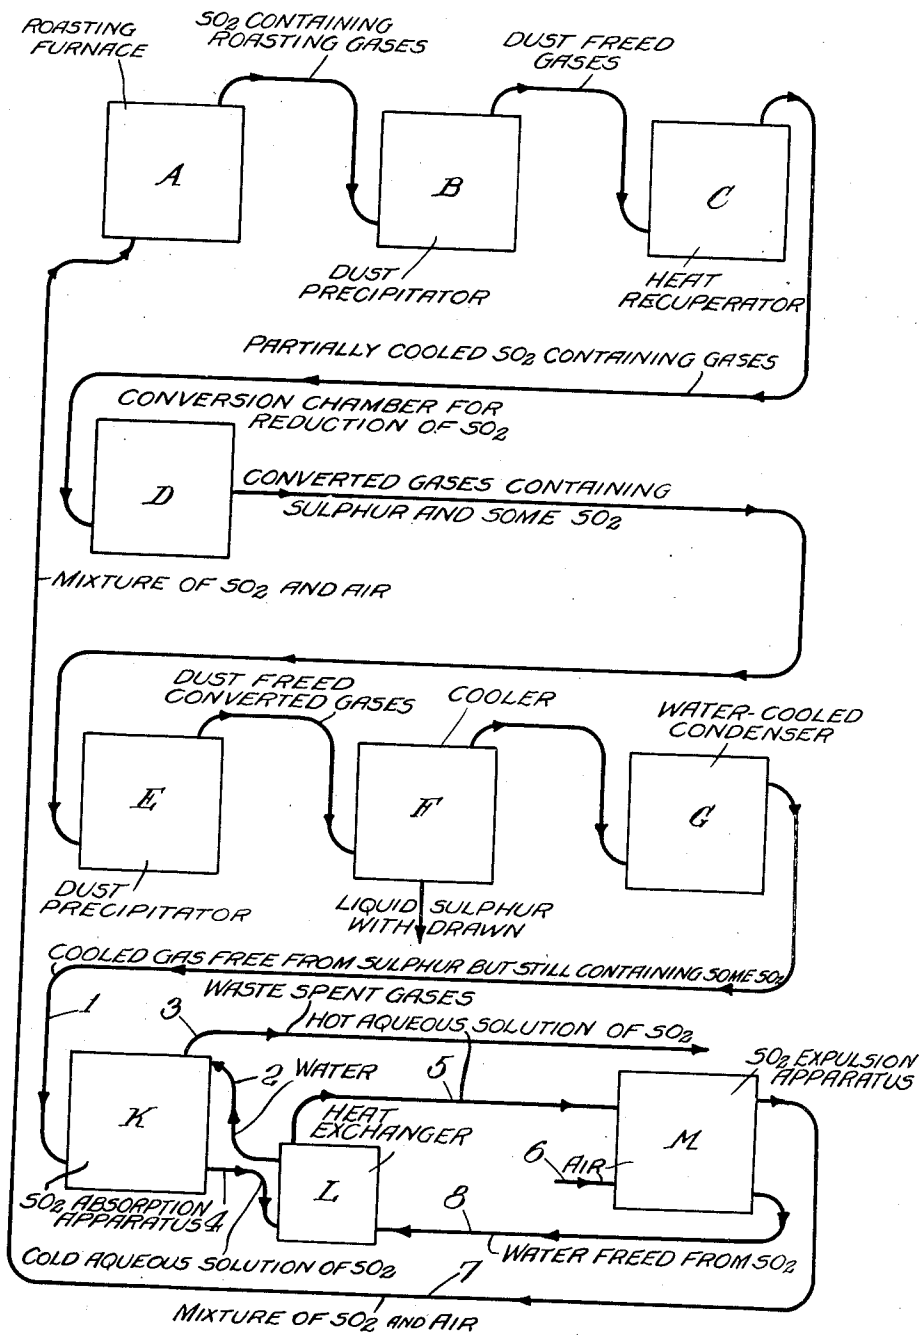 ROASTING
FURNACE
SO2 CONTAINING
ROASTING GASES
DUST FREED
GASES
A
B
C
DUST
PRECIPITATOR
HEAT
RECUPERATOR
PARTIALLY COOLED SO2 CONTAINING GASES
CONVERSION CHAMBER FOR
REDUCTION OF SO2
D
CONVERTED GASES CONTAINING
SULPHUR AND SOME SO2
MIXTURE OF SO2 AND AIR
DUST FREED
CONVERTED GASES
COOLER
WATER-COOLED
CONDENSER
E
F
G
DUST
PRECIPITATOR
LIQUID SULPHUR
WITH DRAWN
COOLED GAS FREE FROM SULPHUR BUT STILL CONTAINING SOME SO2
1
WASTE SPENT GASES
3
HOT AQUEOUS SOLUTION OF SO2
2
WATER
5
SO2 EXPULSION
APPARATUS
K
HEAT
EXCHANGER
L
M
6
AIR
SO2 ABSORPTION
APPARATUS
4
8
COLD AQUEOUS SOLUTION OF SO2
WATER FREED FROM SO2
7
MIXTURE OF SO2 AND AIR